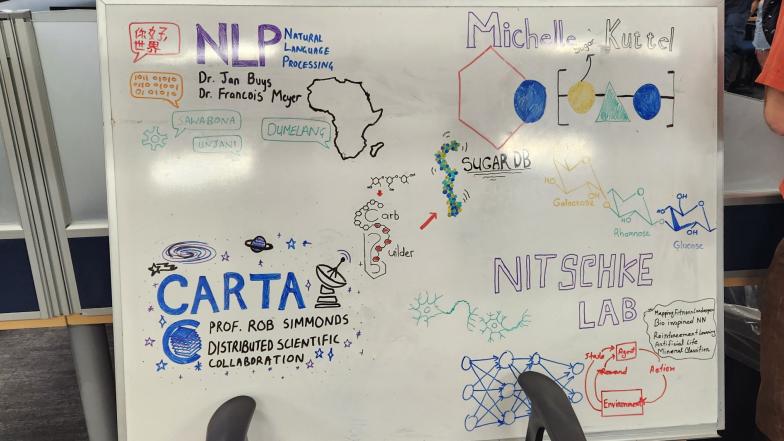 你好,
世界
NLP
NATURAL
LANGUAGE
PROCESSING
1011 01010
0110 01001
01 01010
Dr. Jan Buys
Dr. Francois Meyer
SAWABONA
UNJANI
DUMELANG
Michelle Kuttel
Sugar
SUGAR DB
Carb
Builder
HO
Galactose
HO
Rhamnose
OH
HO
OH
Glucose
CARTA
PROF. ROB SIMMONDS
DISTRIBUTED SCIENTIFIC
COLLABORATION
NITSCHKE
LAB
Mapping Fitness Landscapes
Bio inspired NN
Reinforcement Learning
Artificial Life
Mineral Classification
State
Agent
Reward
Action
Environment